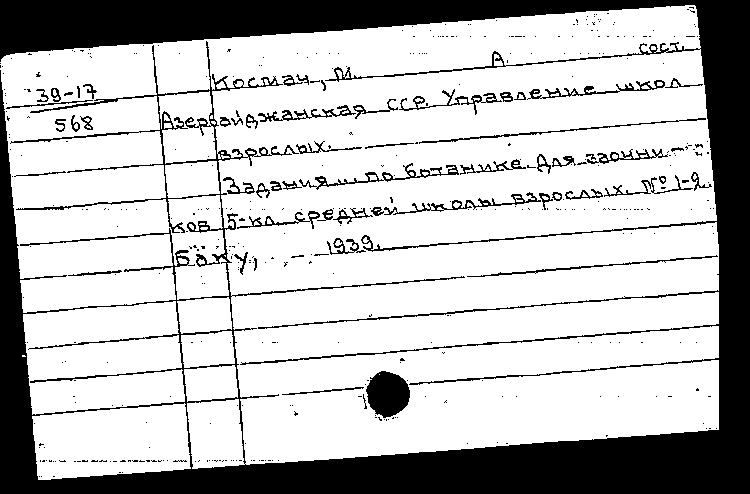 Косман, М. А. сост.
39-17
568
Азербайджанская ССР. Управление школ
взрослых.
Задания .. по ботанике. Для заочни-
ков 5-кл. средней школы взрослых. № 1-2.
Баку, - 1939.